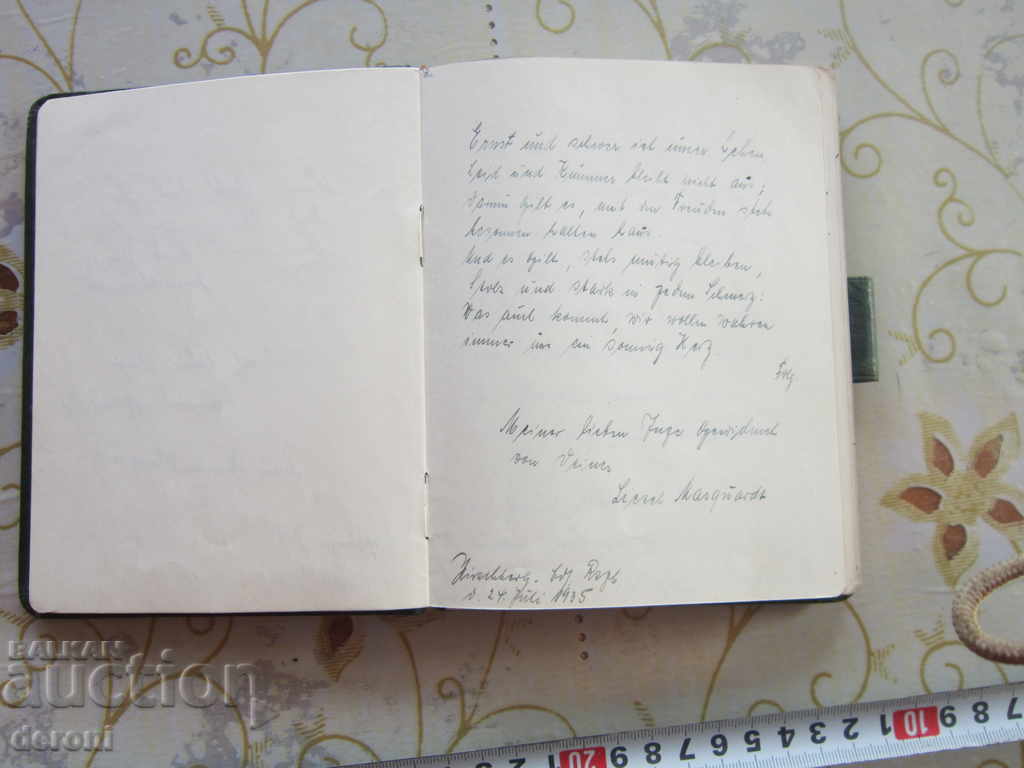 Ernst und schwer ist unser Leben,
Leid und Kummer bleibt nicht aus;
Darum gilt es, mit den Freuden stets
besonnen halten haus.
Und es gilt, stets mutig bleiben,
Stolz und stark in jedem Schmerz:
Was auch kommt, wir wollen wahren
immer nur ein sonnig Herz
Meiner lieben Inge gewidmet
von Deiner
Liesel Marquardt
Hirschberg.
d. 24. Juli 1935
BALKAN
auction
deroni
7 8 9 10 1 2 3 4 5 6 7 8 9 20 1 2 3